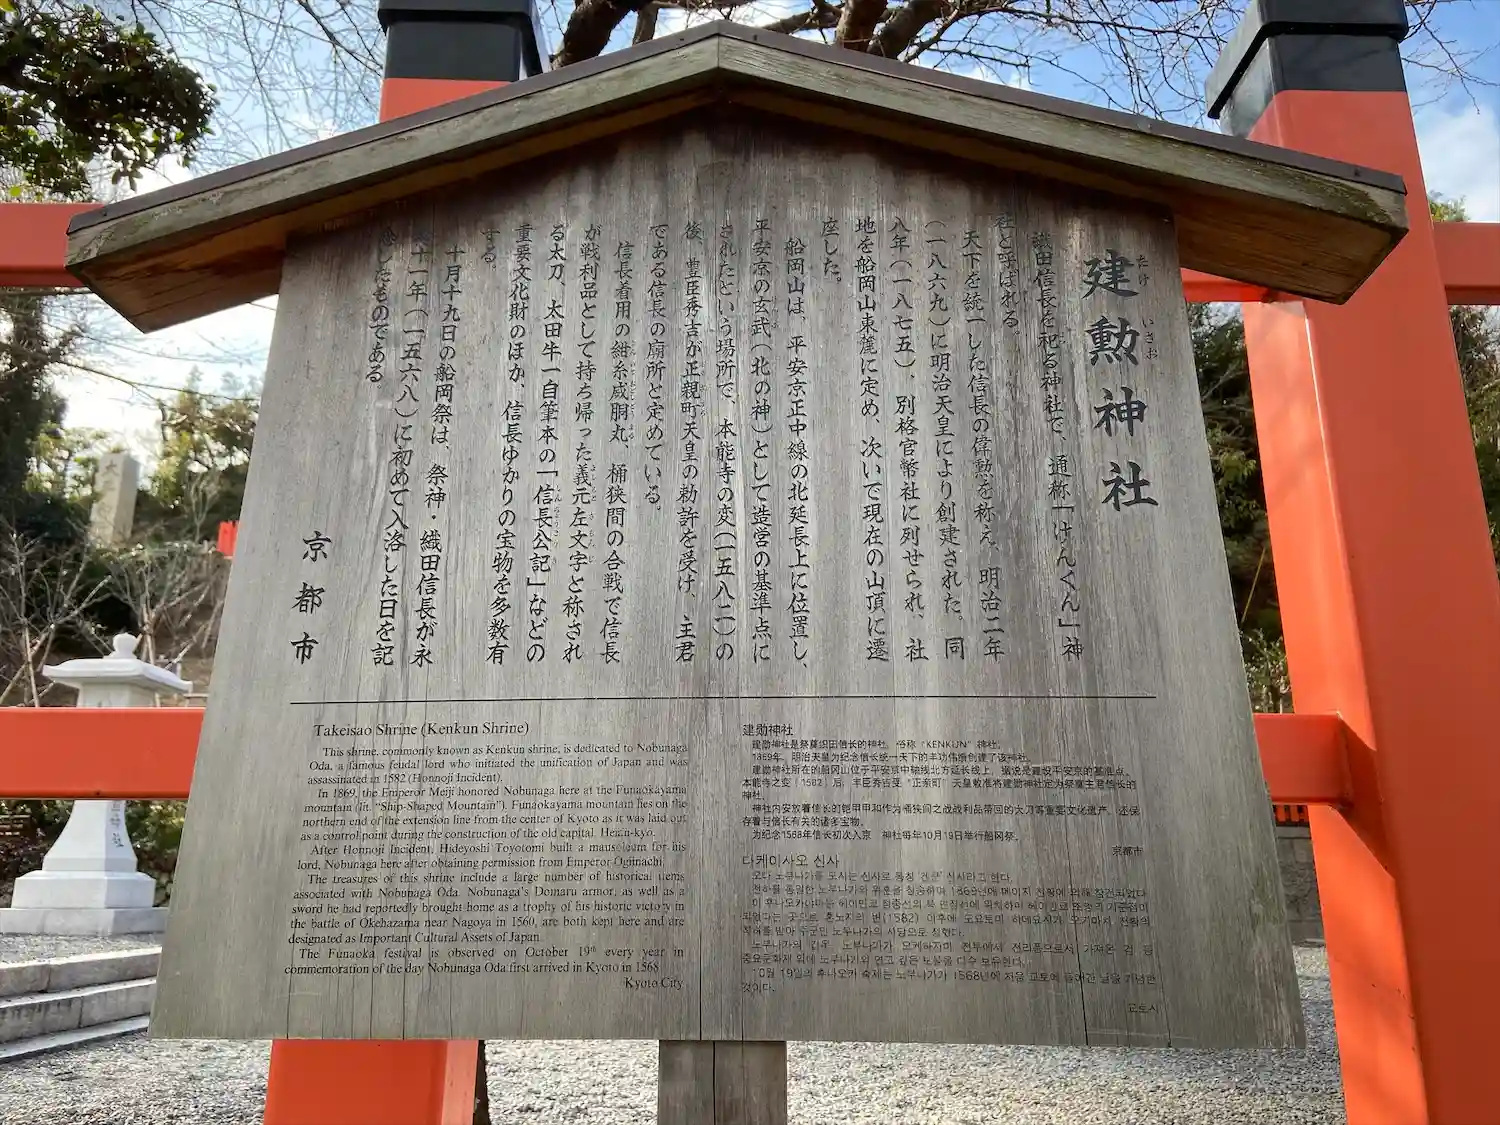 建勲神社
たけ いさお
織田信長を祀る神社で、通称「けんくん」神
社と呼ばれる。
天下を統一した信長の偉勲を称え、明治二年
(一八六九)に明治天皇により創建された。同
八年(一八七五)、別格官幣社に列せられ、社
地を船岡山東麓に定め、次いで現在の山頂に遷
座した。
船岡山は、平安京正中線の北延長上に位置し、
平安京の玄武(北の神)として造営の基準点に
されたという場所で、本能寺の変(一五八二)の
後、豊臣秀吉が正親町天皇の勅許を受け、主君
である信長の廟所と定めている。
信長着用の紺糸威胴丸、桶狭間の合戦で信長
が戦利品として持ち帰った義元左文字と称され
る太刀、太田牛一自筆本の「信長公記」などの
重要文化財のほか、信長ゆかりの宝物を多数有
する。
十月十九日の船岡祭は、祭神・織田信長が永
十一年(一五六八)に初めて入洛した日を記
したものである。
京都市
Takeisao Shrine (Kenkun Shrine)
This shrine, commonly known as Kenkun shrine, is dedicated to Nobunaga
Oda, a famous feudal lord who initiated the unification of Japan and was
assassinated in 1582 (Honnoji Incident).
In 1869, the Emperor Meiji honored Nobunaga here at the Funaokayama
mountain (lit. "Ship-Shaped Mountain"). Funaokayama mountain lies on the
northern end of the extension line from the center of Kyoto as it was laid out
as a control point during the construction of the old capital, Heian-kyo.
After Honnoji Incident, Hideyoshi Toyotomi built a mausoleum for his
lord, Nobunaga here after obtaining permission from Emperor Ogimachi.
The treasures of this shrine include a large number of historical items
associated with Nobunaga Oda. Nobunaga's Domaru armor, as well as a
sword he had reportedly brought home as a trophy of his historic victory in
the battle of Okehazama near Nagoya in 1560, are both kept here and are
designated as Important Cultural Assets of Japan.
The Funaoka festival is observed on October 19th every year in
commemoration of the day Nobunaga Oda first arrived in Kyoto in 1568
Kyoto City
建勋神社
建勋神社是祭奠织田信长的神社。俗称"KENKUN"神社。
1869年、明治天皇为纪念信长统一天下的丰功伟绩创建了该神社。
建勋神社所在的船冈山位于平安京中轴线北方延长线上。据说是建设平安京的基准点。
本能寺之变(1582)后、丰臣秀吉受"正亲町"天皇敕准将建勋神社定为祭奠主君信长的
神社。
神社内安放着信长的铠甲和作为桶狭间之战战利品带回的大刀等重要文化遗产。还保
存着与信长有关的诸多宝物。
为纪念1568年信长初次入京 神社每年10月19日举行船冈祭。
京都市
다케이사오 신사
오다 노부나가를 모시는 신사로 통칭 '겐쿤' 신사라고 한다.
천하를 통일한 노부나가의 위훈을 칭송하며 1869년에 메이지 천황에 의해 창건되었다.
되었다는 곳으로 혼노지의 변(1582) 이후에 도요토미 히데요시가 오기마치 천황의
칙허를 받아 주군인 노부나가의 사당으로 정했다.
10월 19일의 후나오카 축제는 노부나가가 1568년에 처음 교토에 들어간 날을 기념한
것이다.
교토시